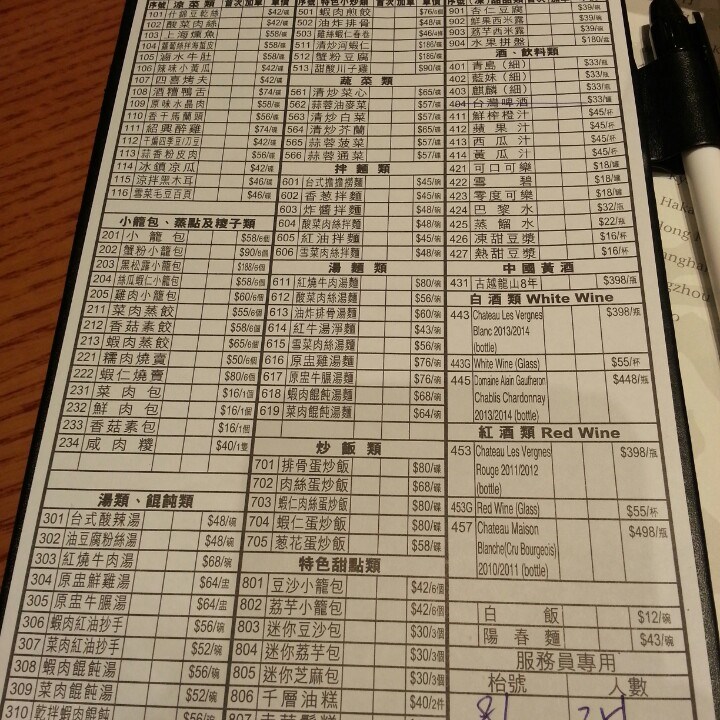 序號 涼菜類 首次 加單 單價
101 什錦豆乾絲 $42/碟
102 酸菜肉絲 $42/碟
103 上海燻魚 $58/碟
104 蘿蔔絲拌海蜇皮 $58/碟
105 滷水牛肚 $58/碟
106 辣味小黃瓜 $42/碟
107 四喜烤夫 $42/碟
108 酒糟鴨舌 $74/碟
109 原味水晶肉 $58/碟
110 香干馬蘭頭 $56/碟
111 紹興醉雞 $74/碟
112 千層四季豆 $42/碟
113 蒜香粉皮肉 $56/碟
114 冰鎮涼瓜 $42/碟
115 涼拌黑木耳 $46/碟
116 雪菜毛豆百頁 $46/碟
小籠包、蒸點及糉子類
201 小籠包 $58/6個
202 蟹粉小籠包 $90/6個
203 黑松露小籠包 $188/6個
204 絲瓜蝦仁小籠包 $58/6個
205 雞肉小籠包 $60/6個
211 菜肉蒸餃 $55/6個
212 香菇素餃 $58/6個
213 蝦肉蒸餃 $65/6個
221 糯肉燒賣 $50/6個
222 蝦仁燒賣 $80/6個
231 菜肉包 $16/1個
232 鮮肉包 $16/1個
233 香菇素包 $16/1個
234 咸肉糉 $40/1隻
湯類、餛飩類
301 台式酸辣湯 $48/碗
302 油豆腐粉絲湯 $48/碗
303 紅燒牛肉湯 $68/碗
304 原盅鮮雞湯 $64/盅
305 原盅牛腸湯 $64/盅
306 蝦肉紅油抄手 $56/碗
307 菜肉紅油抄手 $52/碗
308 蝦肉餛飩湯 $56/碗
309 菜肉餛飩湯 $52/碗
310 乾拌蝦肉餛飩 $56/碗
序號 特色小炒類 首次 加單 單價
501 蝦肉煎餃
502 油炸排骨 $48/碟
503 雞絲蝦仁春卷
511 清炒河蝦仁 $186/碟
512 蟹粉豆腐 $186/碟
513 甜酸川子雞 $90/碟
蔬菜類
561 清炒菜心 $65/碟
562 蒜蓉油麥菜 $57/碟
563 清炒白菜 $57/碟
564 清炒芥蘭 $65/碟
565 蒜蓉菠菜 $57/碟
566 蒜蓉通菜 $57/碟
拌麵類
601 台式擔擔撈麵 $45/碗
602 香葱拌麵 $45/碗
603 炸醬拌麵 $48/碗
604 酸菜肉絲拌麵 $48/碗
605 紅油拌麵 $45/碗
606 雪菜拌麵 $48/碗
湯麵類
611 紅燒牛肉湯麵 $80/碗
612 酸菜肉絲湯麵 $56/碗
613 油炸排骨湯麵 $60/碗
614 紅牛湯淨麵 $43/碗
615 雪菜肉絲湯麵 $56/碗
616 原盅雞湯麵 $76/碗
617 原盅牛腸湯麵 $76/碗
618 蝦肉餛飩湯麵 $68/碗
619 菜肉餛飩湯麵 $64/碗
炒飯類
701 排骨蛋炒飯 $80/碟
702 肉絲蛋炒飯 $68/碟
703 蝦仁肉絲蛋炒飯 $80/碟
704 蝦仁蛋炒飯 $80/碟
705 葱花蛋炒飯 $58/碟
特色甜點類
801 豆沙小籠包 $42/6個
802 荔芋小籠包 $42/6個
803 迷你豆沙包 $30/3個
804 迷你荔芋包 $30/3個
805 迷你芝麻包 $30/3個
806 千層油糕 $40/2件
807
901 杏仁豆腐 $39/碗
902 鮮果西米露 $39/碗
903 荔芋西米露 $39/碗
904 水果拼盤 $180/盤
酒、飲料類
401 青島（細） $33/瓶
402 藍妹（細） $33/瓶
403 麒麟（細） $33/瓶
404 台灣啤酒 $33/罐
411 鮮榨橙汁 $45/杯
412 蘋果汁 $45/杯
413 西瓜汁 $45/杯
414 黃瓜汁 $45/杯
421 可口可樂 $18/罐
422 雪碧 $18/罐
423 零度可樂 $18/罐
424 巴黎水 $32/瓶
425 蒸餾水 $22/瓶
426 凍甜豆漿 $16/杯
427 熱甜豆漿 $16/杯
中國黃酒
431 古越龍山8年 $398/瓶
白酒類 White Wine
443 Chateau Les Vergnes $398/瓶
Blanc 2013/2014
(bottle)
443G White Wine (Glass) $55/杯
445 Domaine Alain Gautheron $448/瓶
Chablis Chardonnay
2013/2014 (bottle)
紅酒類 Red Wine
453 Chateau Les Vergnes $398/瓶
Rouge 2011/2012
(bottle)
453G Red Wine (Glass) $55/杯
457 Chateau Maison $498/瓶
Blanche(Cru Bourgeois)
2010/2011 (bottle)
白飯 $12/碗
陽春麵 $43/碗
服務員專用
枱號 人數